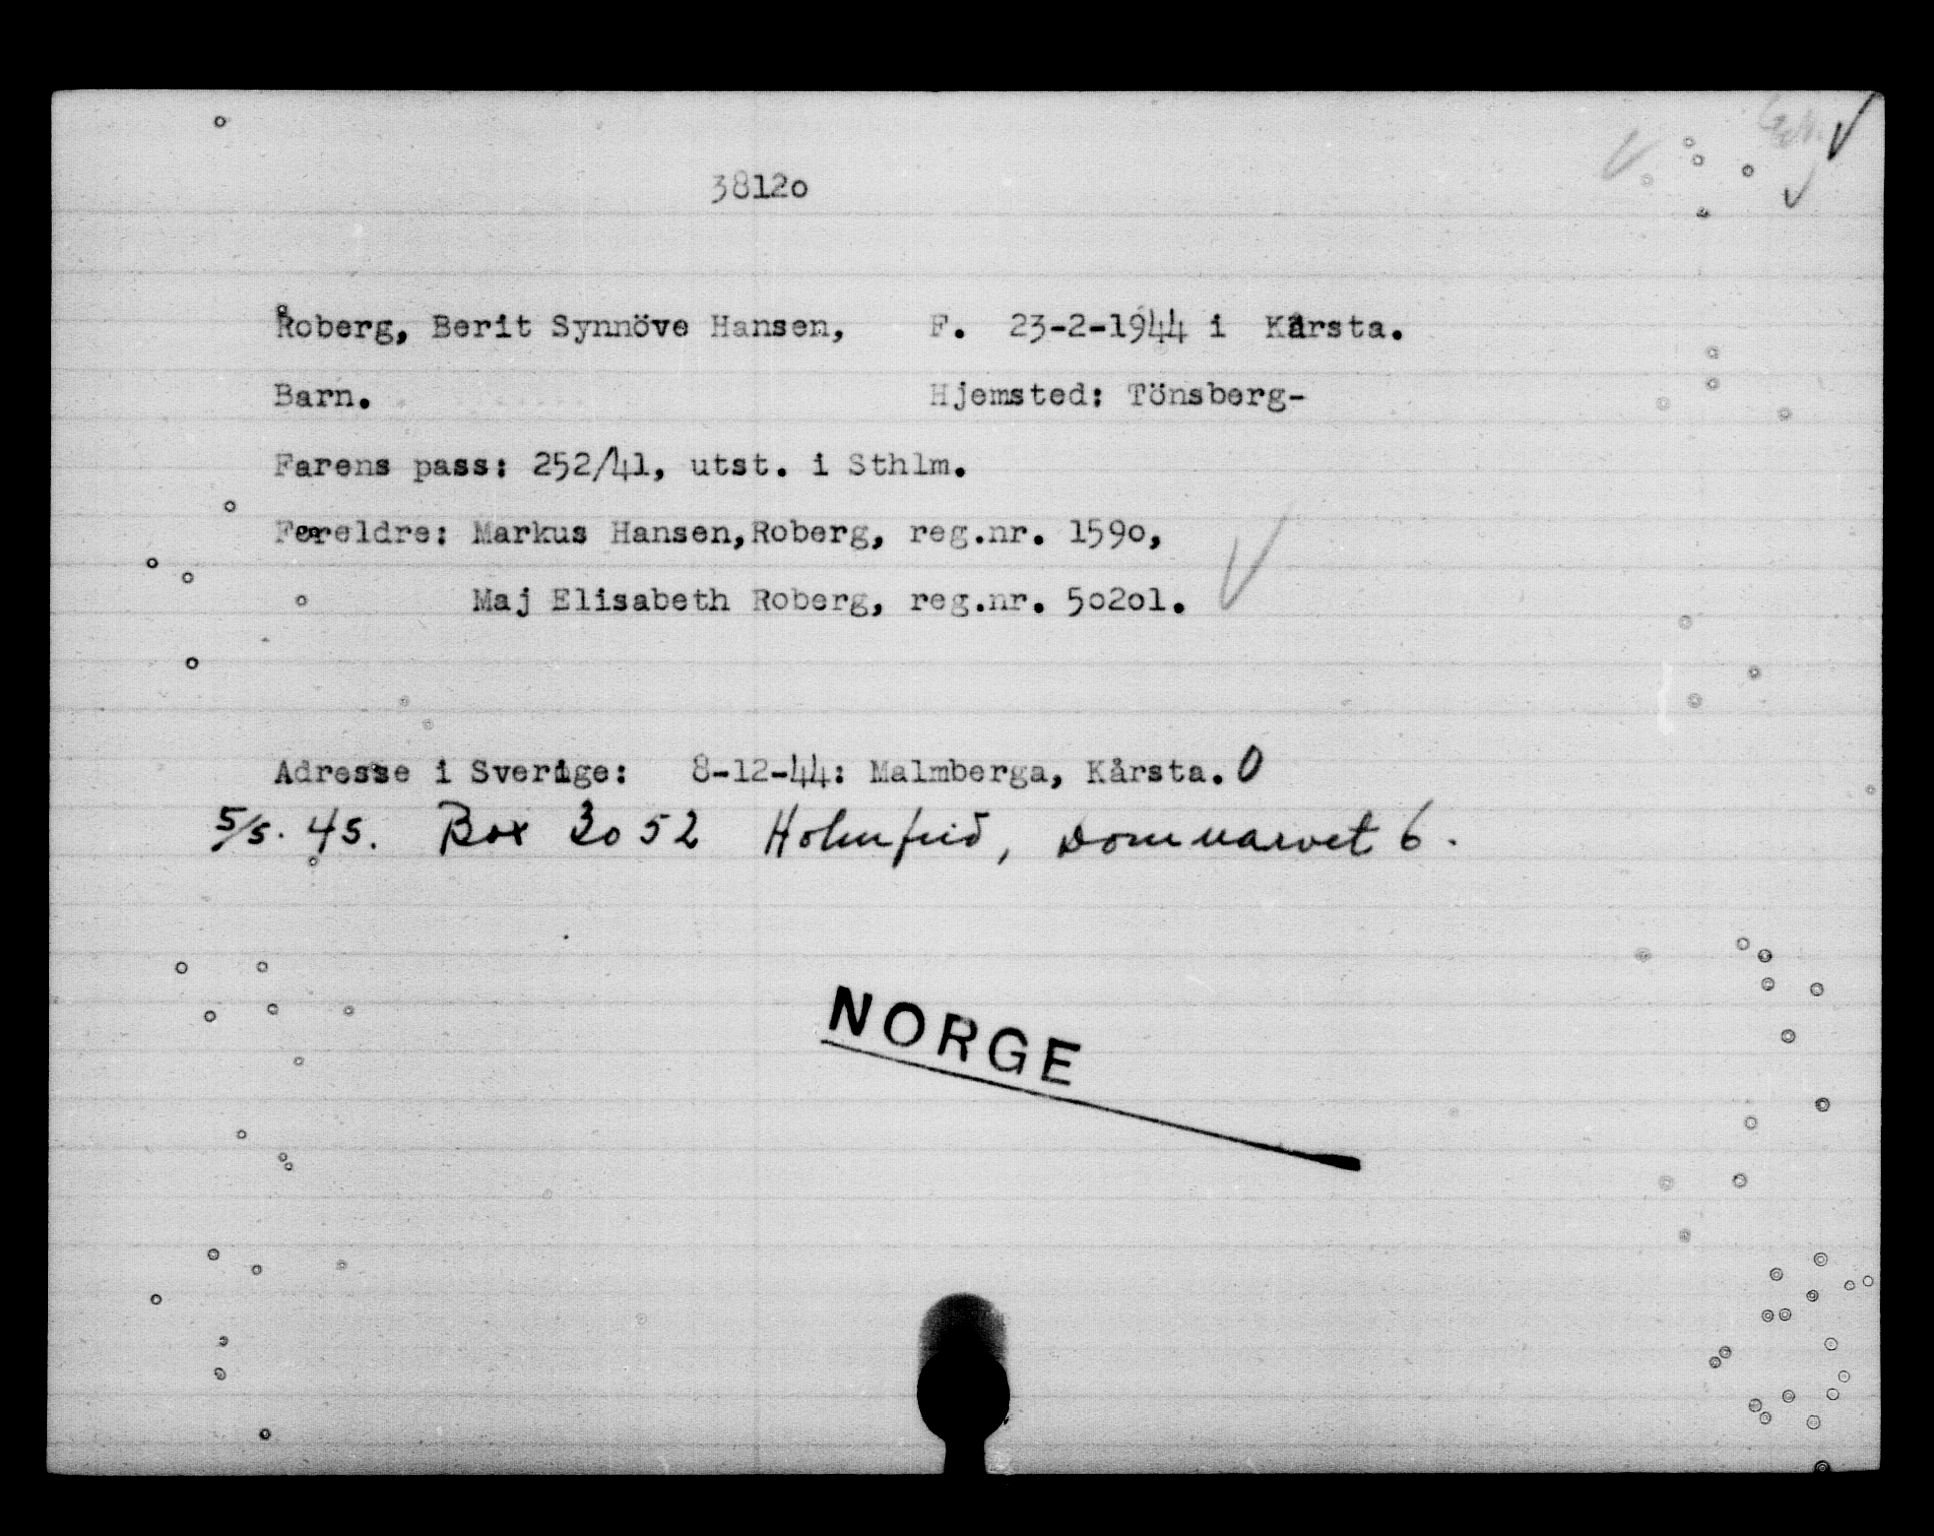 3812o
Roberg, Berit Synnöve Hansen, F. 23-2-1944 i Kårsta.
Barn. Hjemsted: Tönsberg-
Farens pass: 252/41, utst. i Sthlm.
Foreldre: Markus Hansen,Roberg, reg.nr. 159o,
Maj Elisabeth Roberg, reg.nr. 5o2o1.
Adresse i Sverige: 8-12-44: Malmberga, Kårsta. O
5/5. 45. Box 3052 Holmfrid, Domnarvet 6.
NORGE